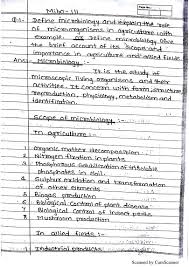 Micro-111
Q.1. Define microbiology and explain the role
of microorganisms in agriculture with
example. or Define microbiology. Give
the brief account of its scope and
importance in agriculture and allied fields.
Ans:- Microbiology:-
It is the study of
microscopic living organisms and their
activities. It concern with form, structure
reproduction, physiology, metabolism and
identification.
Scope of microbiology:-
In agriculture:-
1. Organic matter decomposition
2. Nitrogen fixation in plants
3. Phosphorous solubilization of
phosphates in soil.
4. Sulphur oxidation and transformation
of other elements
5. Biogas production
6. Biological control of plant disease
7. Biological control of insect pests
8. Mushroom production.
In allied fields:-
1. Industrial products
Scanned by CamScanner